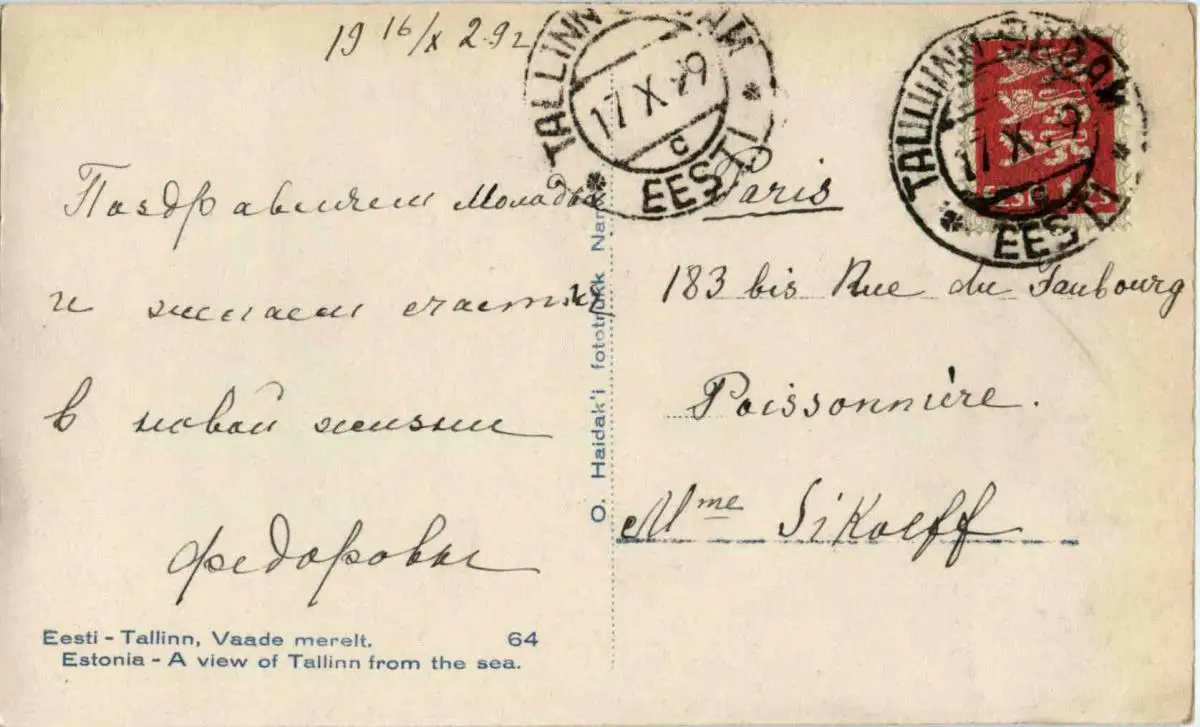 19 16/X 29 г
Поздравляем Молодых
и желаем счастья
в новой жизни
Федоровы
Eesti - Tallinn, Vaade merelt. 64
Estonia - A view of Tallinn from the sea.
O. Haidak'i fototrükk
TALLINN
17 X 29
C
EESTI
TALLINN
17 X 29
EESTI
EESTI
Paris
183 bis Rue du Faubourg
Poissonnière.
Mme Sikoeff